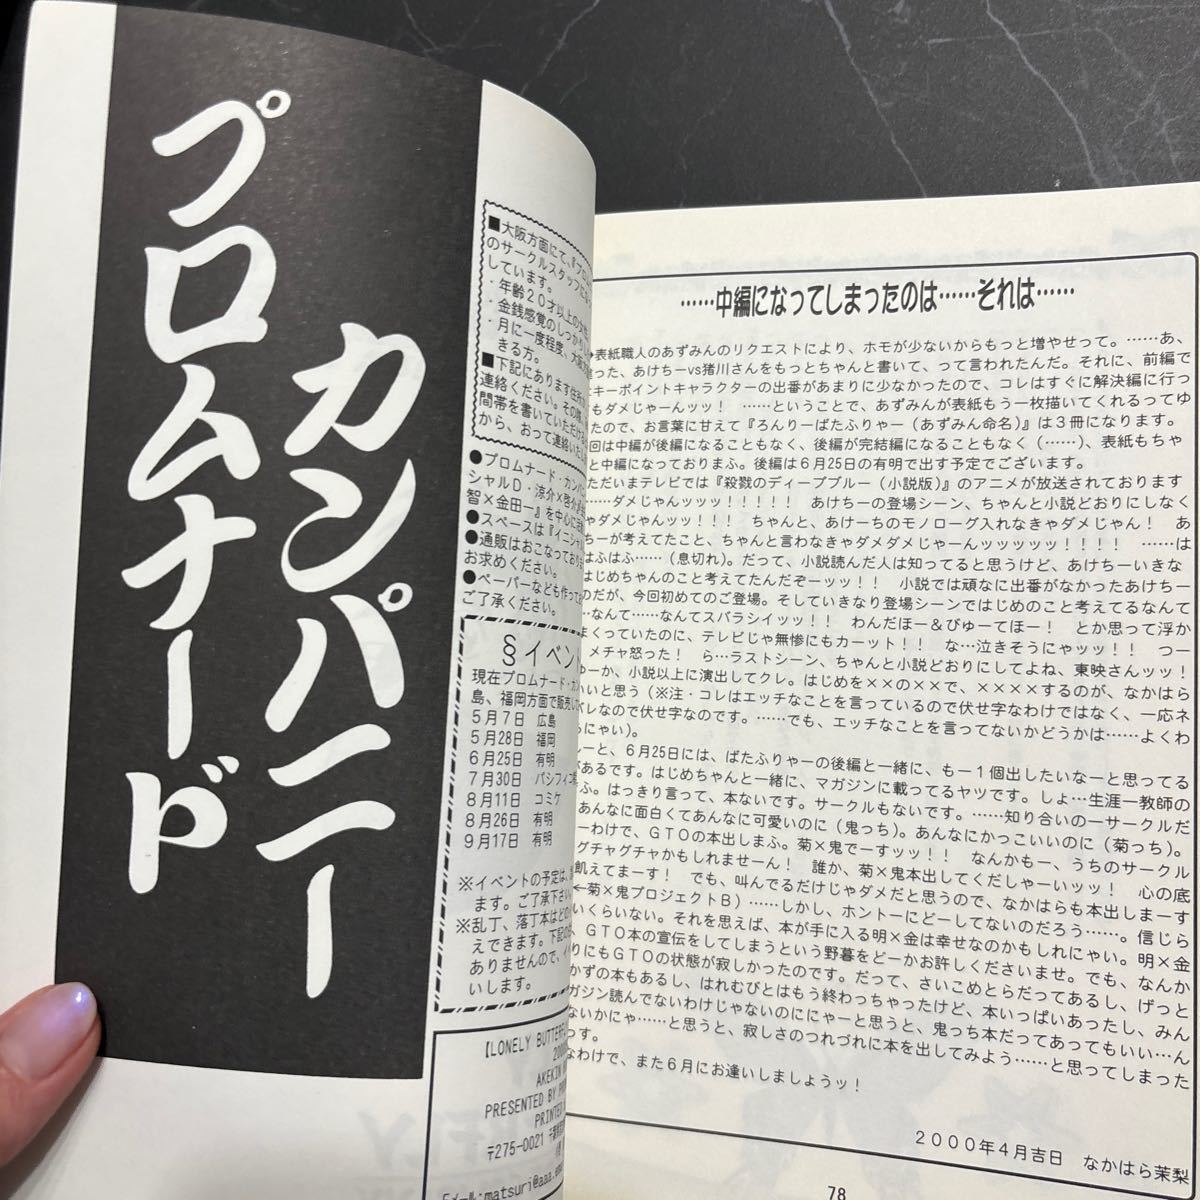 プロムナード
カンパニー
■大阪方面にて、『プロ
のサークルスタッフ
しています。
・年齢２０才以上の女性
・金銭感覚のしっかり
・月に一度程度、大阪
きる方。
■下記にあります住所
連絡ください。その際
間帯を書いていただける
から、おって連絡いた
●プロムナード・カンパ
シャルＤ・涼介×啓介
智×金田一』を中心に活
●スペースは『イニシャ
●通販はおこなっており
お求めください。
●ペーパーなども作って
ご了承ください。
§イベン
現在プロムナード・カン
島、福岡方面で販売
５月７日　広島
５月28日　福岡
６月25日　有明
７月30日　パシフィコ
８月11日　コミケ
８月26日　有明
９月17日　有明
※イベントの予定は、
ます。ご了承下さい
※乱丁、落丁本はどの
えできます。下記の
ありませんので、イ
いします。
【LONELY BUTTERF
200
AKEKIN
PRESENTED BY PR
PRINTED
〒275-0021 千葉
Eメール:matsuri@aaa.em
……中編になってしまったのは……それは……
→表紙職人のあずみんのリクエストにより、ホモが少ないからもっと増やせって。……あ、
違った、あけちーvs猪川さんをもっとちゃんと書いて、って言われたんだ。それに、前編で
キーポイントキャラクターの出番があまりに少なかったので、コレはすぐに解決編に行っ
もダメじゃーんッッ！　……ということで、あずみんが表紙もう一枚描いてくれるってゆ
たので、お言葉に甘えて『ろんりーばたふりゃー（あずみん命名）』は３冊になります。
回は中編が後編になることもなく、後編が完結編になることもなく（……）、表紙もちゃ
と中編になっておりまふ。後編は６月25日の有明で出す予定でございます。
ただいまテレビでは『殺戮のディープブルー（小説版）』のアニメが放送されております
……ダメじゃんッッッ！！！！！　あけちーの登場シーン、ちゃんと小説どおりにしなく
ゃダメじゃんッッ！！！　ちゃんと、あけーちのモノローグ入れなきゃダメじゃん！　あ
ちーが考えてたこと、ちゃんと言わなきゃダメダメじゃーんッッッッッ！！！！　……は
はふはふ……（息切れ）。だって、小説読んだ人は知ってると思うけど、あけちーいきな
はじめちゃんのこと考えてたんだぞーッッ！！　小説では頑なに出番がなかったあけちー
のだが、今回初めてのご登場。そしていきなり登場シーンではじめのこと考えてるなんて
…なんて……なんてスバラシイッッ！！　わんだほー＆びゅーてほー！　とか思って浮か
まくっていたのに、テレビじゃ無惨にもカーット！！　な…泣きそうにゃッッ！！　つー
メチャ怒った！　ら…ラストシーン、ちゃんと小説どおりにしてよね、東映さんッッ！
ゅーか、小説以上に演出してクレ。はじめを××の××で、××××するのが、なかはら
いいと思う（※注・コレはエッチなことを言っているので伏せ字なわけではなく、一応ネ
バレなので伏せ字なのです。……でも、エッチなことを言ってないかどうかは……よくわ
らにゃい）。
しーと、６月25日には、ばたふりゃーの後編と一緒に、もー１個出したいなーと思ってる
があるです。はじめちゃんと一緒に、マガジンに載ってるヤツです。しょ…生涯一教師の
ふ。はっきり言って、本ないです。サークルもないです。……知り合いの一サークルだ
あんなに面白くてあんなに可愛いのに（鬼っち）。あんなにかっこいいのに（菊っち）。
ーわけで、ＧＴＯの本出しまふ。菊×鬼でーすッッ！！　なんかもー、うちのサークル
グチャグチャかもしれませーん！　誰か、菊×鬼本出してくだしゃーいッッ！　心の底
飢えてまーす！　でも、叫んでるだけじゃダメだと思うので、なかはらも本出しまーす
←菊×鬼プロジェクトＢ）……しかし、ホントーにどーしてないのだろう……。信じら
いくらいない。それを思えば、本が手に入る明×金は幸せなのかもしれにゃい。明×金
、ＧＴＯ本の宣伝をしてしまうという野暮をどーかお許しくださいませ。でも、なんか
りにもＧＴＯの状態が寂しかったのです。だって、さいこめとらだってあるし、げっと
かずの本もあるし、はれむびとはもう終わっちゃったけど、本いっぱいあったし、みん
ガジン読んでないわけじゃないのににゃーと思うと、鬼っち本だってあってもいい…ん
ないかにゃ……と思うと、寂しさのつれづれに本を出してみよう……と思ってしまった
っす。
なわけで、また６月にお逢いしましょうッ！
２０００年４月吉日　なかはら茉梨
78